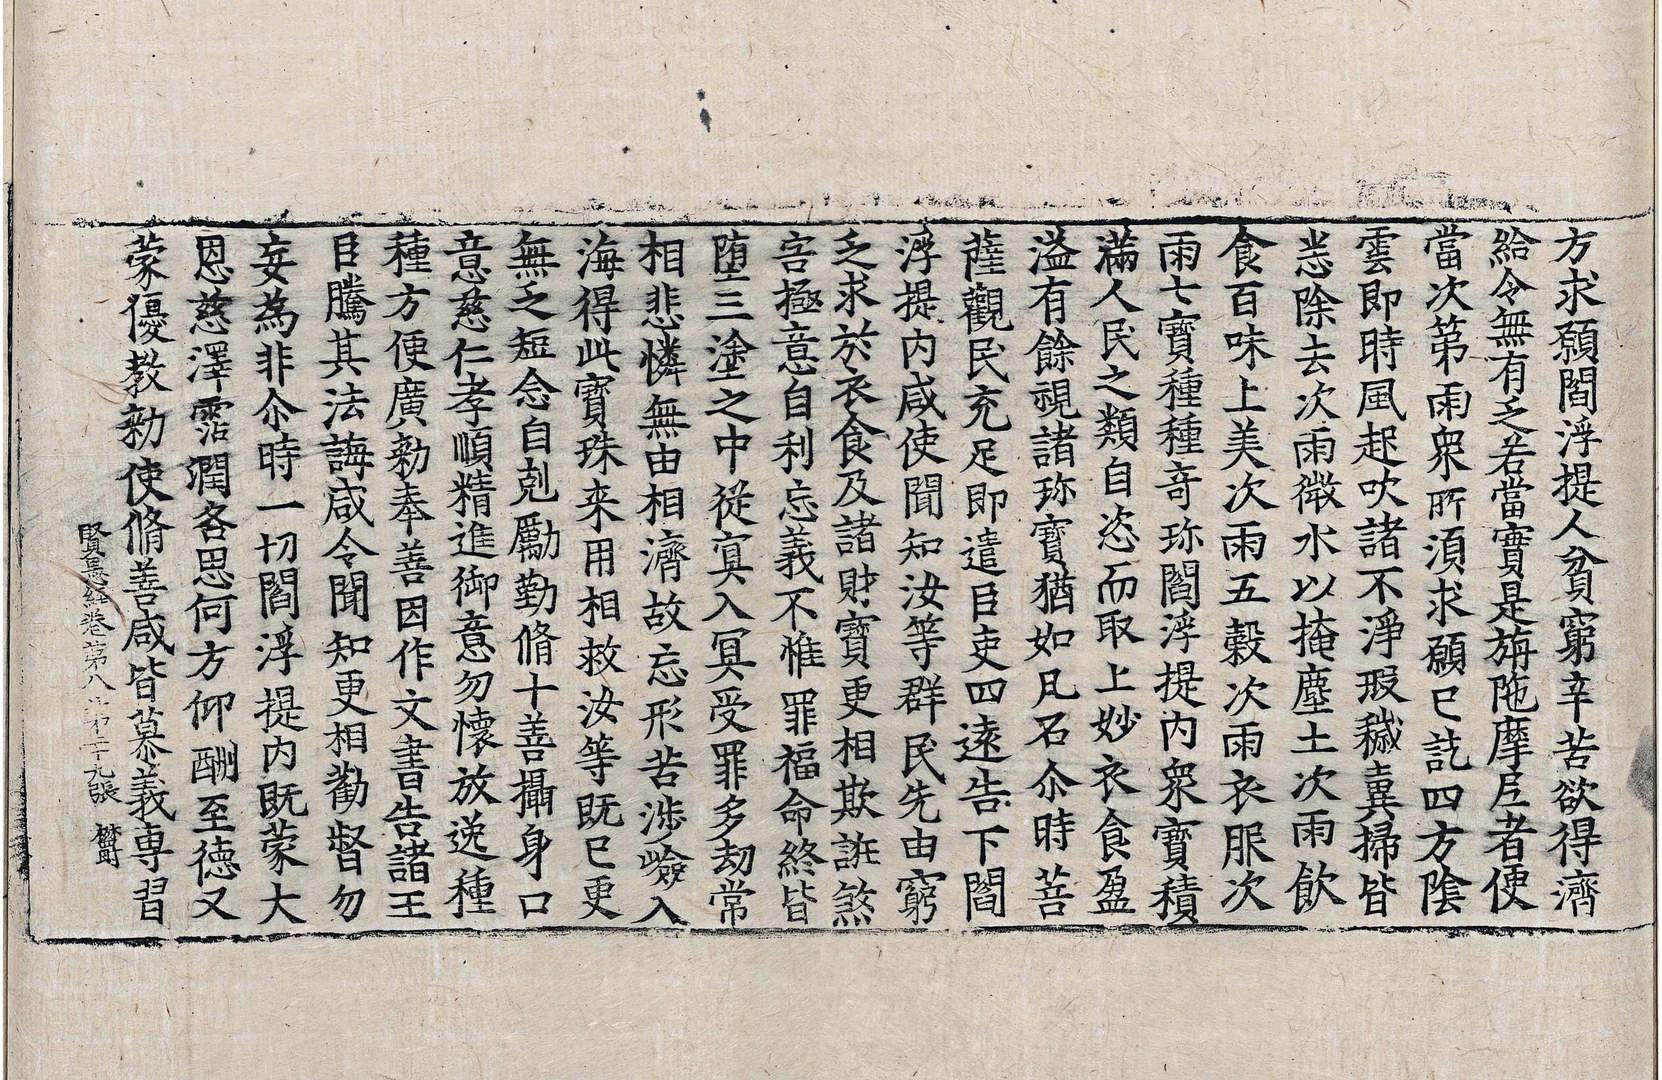 方求願閻浮提人貧窮辛苦欲得濟
給令無有乏若當實是旃陁摩尼者便
當次第雨衆所湏求願已訖四方陰
雲即時風起吹諸不淨瑕穢糞掃皆
悉除去次雨微水以掩塵土次雨飲
食百味上美次雨五穀次雨衣服次
雨七寶種種奇珎閻浮提內衆寶積
滿人民之類自恣而取上妙衣食盈
溢有餘視諸珎寶猶如凡石尒時菩
薩觀民充足即遣臣吏四遠告下閻
浮提內咸使聞知汝等群民先由窮
乏求於衣食及諸財寶更相欺誑煞
害極意自利忘義不惟罪福命終皆
墮三塗之中從冥入冥受罪多劫常
相悲憐無由相濟故忘形苦涉嶮入
海得此寶珠来用相救汝等既已更
無乏短念自剋勵勤脩十善攝身口
意慈仁孝順精進御意勿懷放逸種
種方便廣勑奉善因作文書告諸王
臣騰其法誨咸令聞知更相勸督勿
妄為非尒時一切閻浮提內既蒙大
恩慈澤霑潤各思何方仰酬至德又
蒙優教勑使脩善咸皆慕義専習
賢愚経卷第八 第二十九張